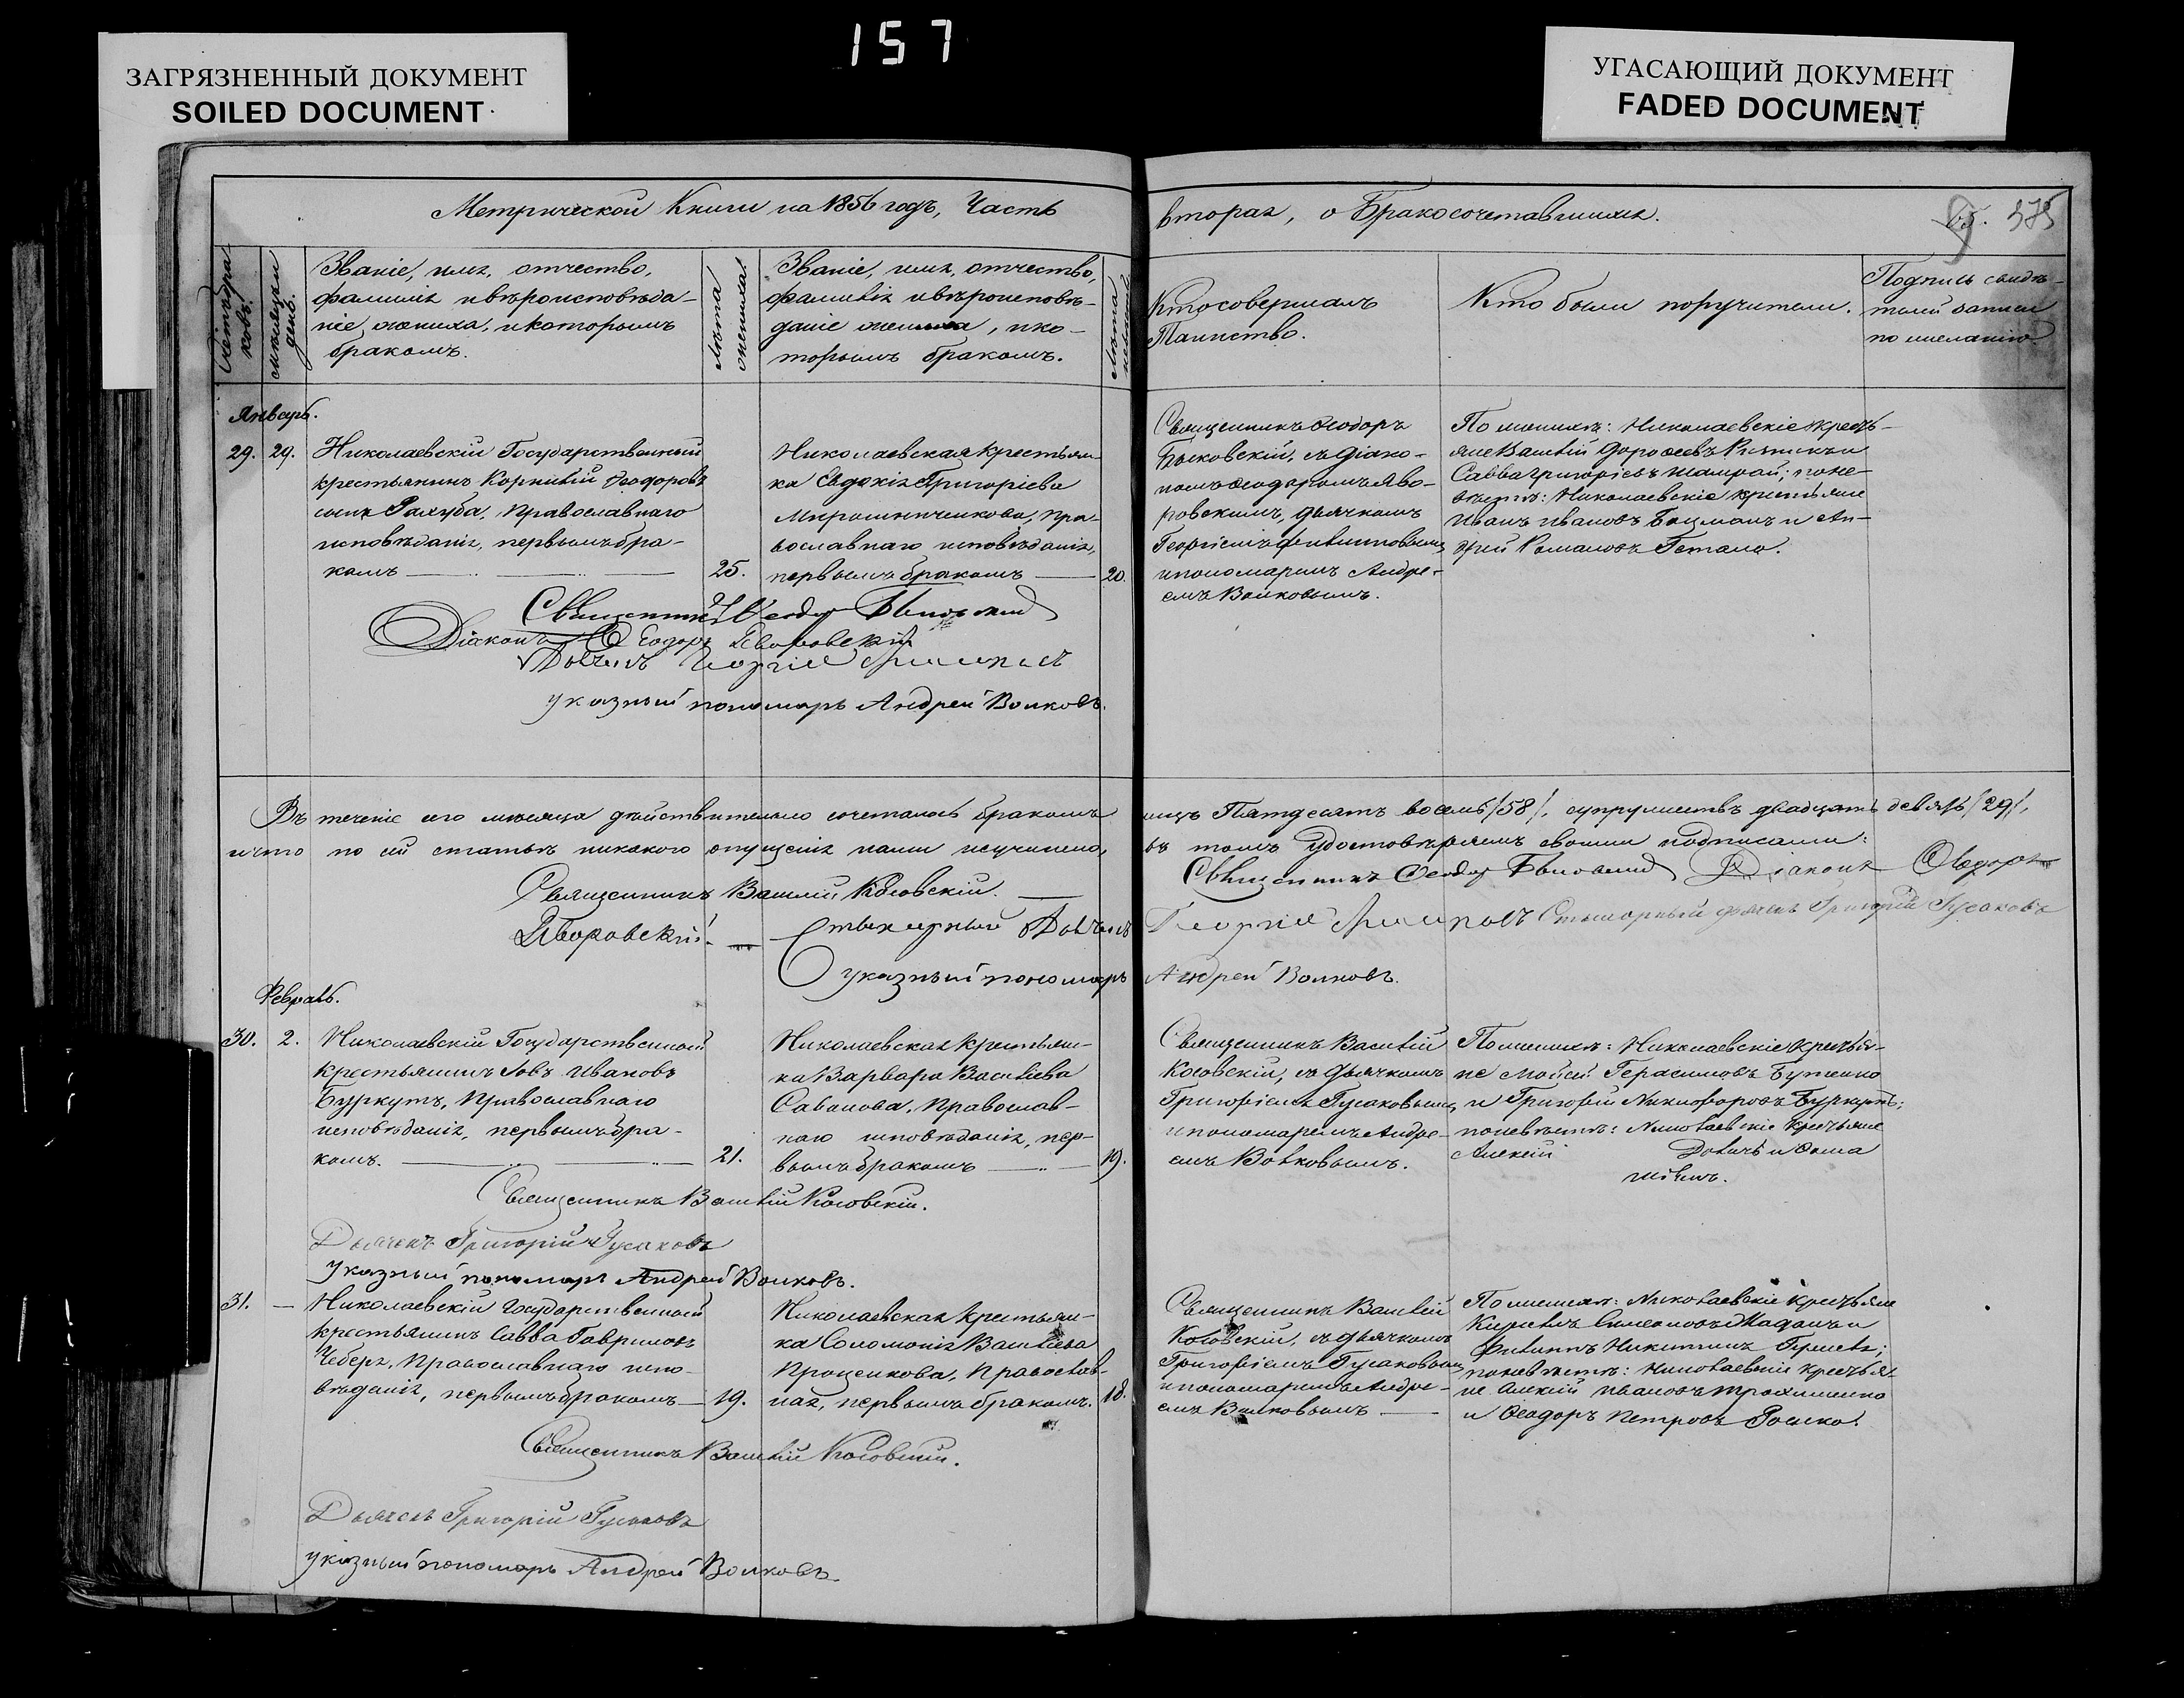 157
ЗАГРЯЗНЕННЫЙ ДОКУМЕНТ
SOILED DOCUMENT
УГАСАЮЩИЙ ДОКУМЕНТ
FADED DOCUMENT
Метрической Книги на 1856 годъ, Часть
вторая, о Бракосочетавшихся.
375
Мѣсяцъ и день.
Званіе, имя, отчество,
фамилія и вѣроисповѣда-
ніе жениха, и которымъ
бракомъ.
Лѣта жениха
Званіе, имя, отчество,
фамилія и вѣроисповѣ-
даніе, и ко-
торымъ бракомъ.
Лѣта невѣсты
Кто совершалъ
Таинство.
Кто были поручители.
Подпись свидѣ-
телей записи
по желанію
Январь.
29. 29.
Николаевскій Государственный
крестьянинъ Корнилій Ѳеодоровъ
сынъ, Православнаго
исповѣданія, первымъ бра-
комъ 25.
Николаевская крестьян-
ка Евдокія Григоріева
Мирошниченкова, пра-
вославнаго исповѣданія,
первымъ бракомъ 20.
Священникъ Ѳеодоръ
Быковскій, съ діако-
номъ Ѳеодоромъ Яво-
ровскимъ, дьячкомъ
Георгіемъ
и пономаремъ Андре-
емъ Волковымъ.
По женихѣ: Николаевскіе кресть-
яне Василій Дороѳеевъ и
Савва Григоріевъ Шамрай; по не-
вѣстѣ: Николаевскіе крестьяне
Иванъ Ивановъ Боцманъ и Ан-
дрей Романовъ Гетало.
Священникъ Ѳеодоръ Быковскій
Діаконъ Ѳеодоръ Яворовскій
Дьячекъ Георгій
Указный пономарь Андрей Волковъ.
Въ теченіе сего мѣсяца дѣйствительно сочеталось бракомъ лицъ Пятдесятъ восемь /58/, супружествъ двадцать девять /29/,
и что по сей статьѣ никакого опущенія нами неучинено, въ томъ удостовѣряемъ своими подписами:
Священникъ Василій Косовскій. Священникъ Ѳеодоръ Быковскій Діаконъ Ѳеодоръ
Яворовскій. Стихарный Дьячекъ Георгій Стихарный дьячекъ Григорій Гусаковъ
Указный пономарь Андрей Волковъ.
Февраль.
30. 2.
Николаевскій Государственный
крестьянинъ Іовъ Ивановъ
Буркутъ, Православнаго
исповѣданія, первымъ бра-
комъ. 21.
Николаевская крестьян-
ка Варвара Василіева
Савонова, Православ-
наго исповѣданія, пер-
вымъ бракомъ 19.
Священникъ Василій
Косовскій, съ дьячкомъ
Григоріемъ Гусаковымъ
и пономаремъ Андре-
емъ Волковымъ.
По женихѣ: Николаевскіе крестья-
не Моисей Герасимовъ Бутенко
и Григорій Никифоровъ Буркутъ;
по невѣстѣ: Николаевскіе крестьяне
Алексій и Ѳома
Священникъ Василій Косовскій.
Дьячекъ Григорій Гусаковъ
Указный пономарь Андрей Волковъ.
31. —
Николаевскій Государственный
крестьянинъ Савва Гавриловъ
Чеберя, Православнаго испо-
вѣданія, первымъ бракомъ 19.
Николаевская крестьян-
ка Соломонія Василіева
Проценкова, Православ-
ная, первымъ бракомъ. 18.
Священникъ Василій
Косовскій, съ дьячкомъ
Григоріемъ Гусаковымъ
и пономаремъ Андре-
емъ Волковымъ
По женихѣ: Николаевскіе крестьяне
Кириллъ Симеоновъ и
Филиппъ Никитинъ;
по невѣстѣ: Николаевскіе крестья-
не Алексій Ивановъ Трохименко
и Ѳеодоръ Петровъ.
Священникъ Василій Косовскій.
Дьячекъ Григорій Гусаковъ
Указный пономарь Андрей Волковъ.